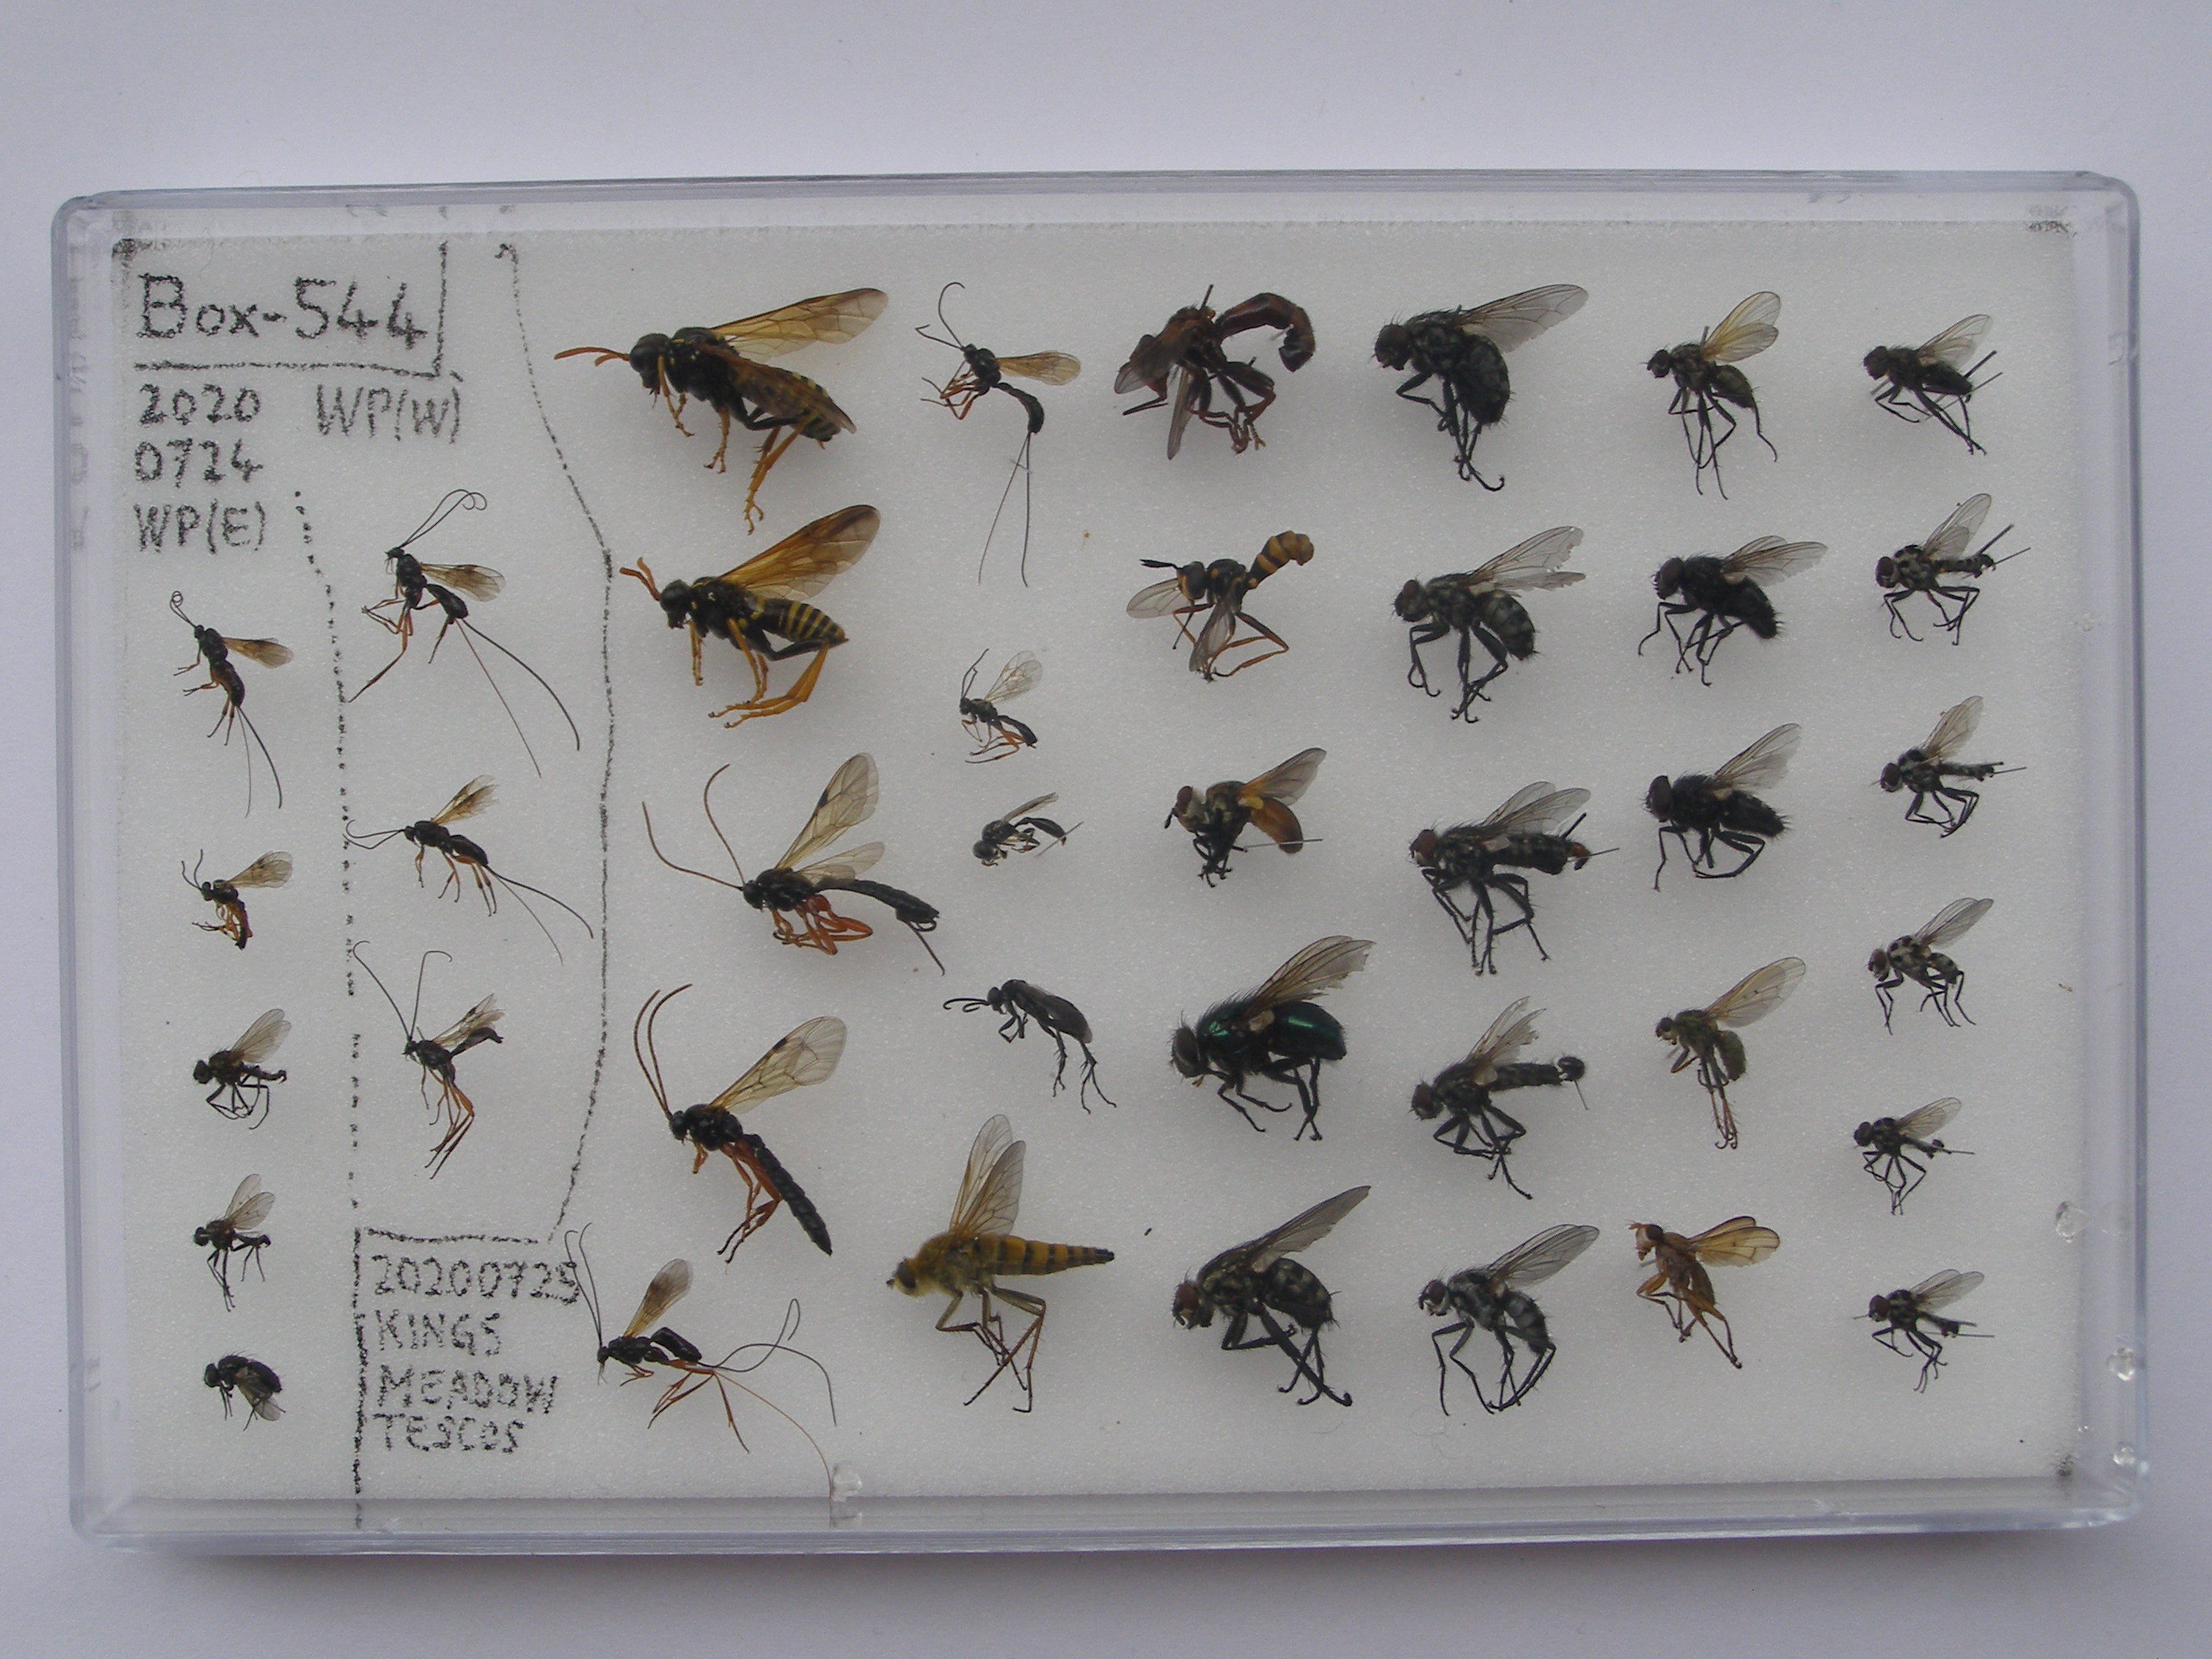 Box-544
2020 WP(W)
0724
WP(E)
20200725
KINGS
MEADOW
TESCOS